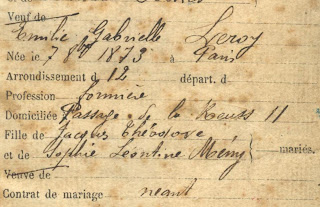 Veuf de
Emilie Gabrielle Leroy
Née le 7 8bre 1873 à Paris
Arrondissement d 12 départ. d
Profession
Domiciliée Passage de la 11
Fille de Jacques Théodore
et de Sophie Léontine Mémy mariés.
Veuve de
Contrat de mariage néant